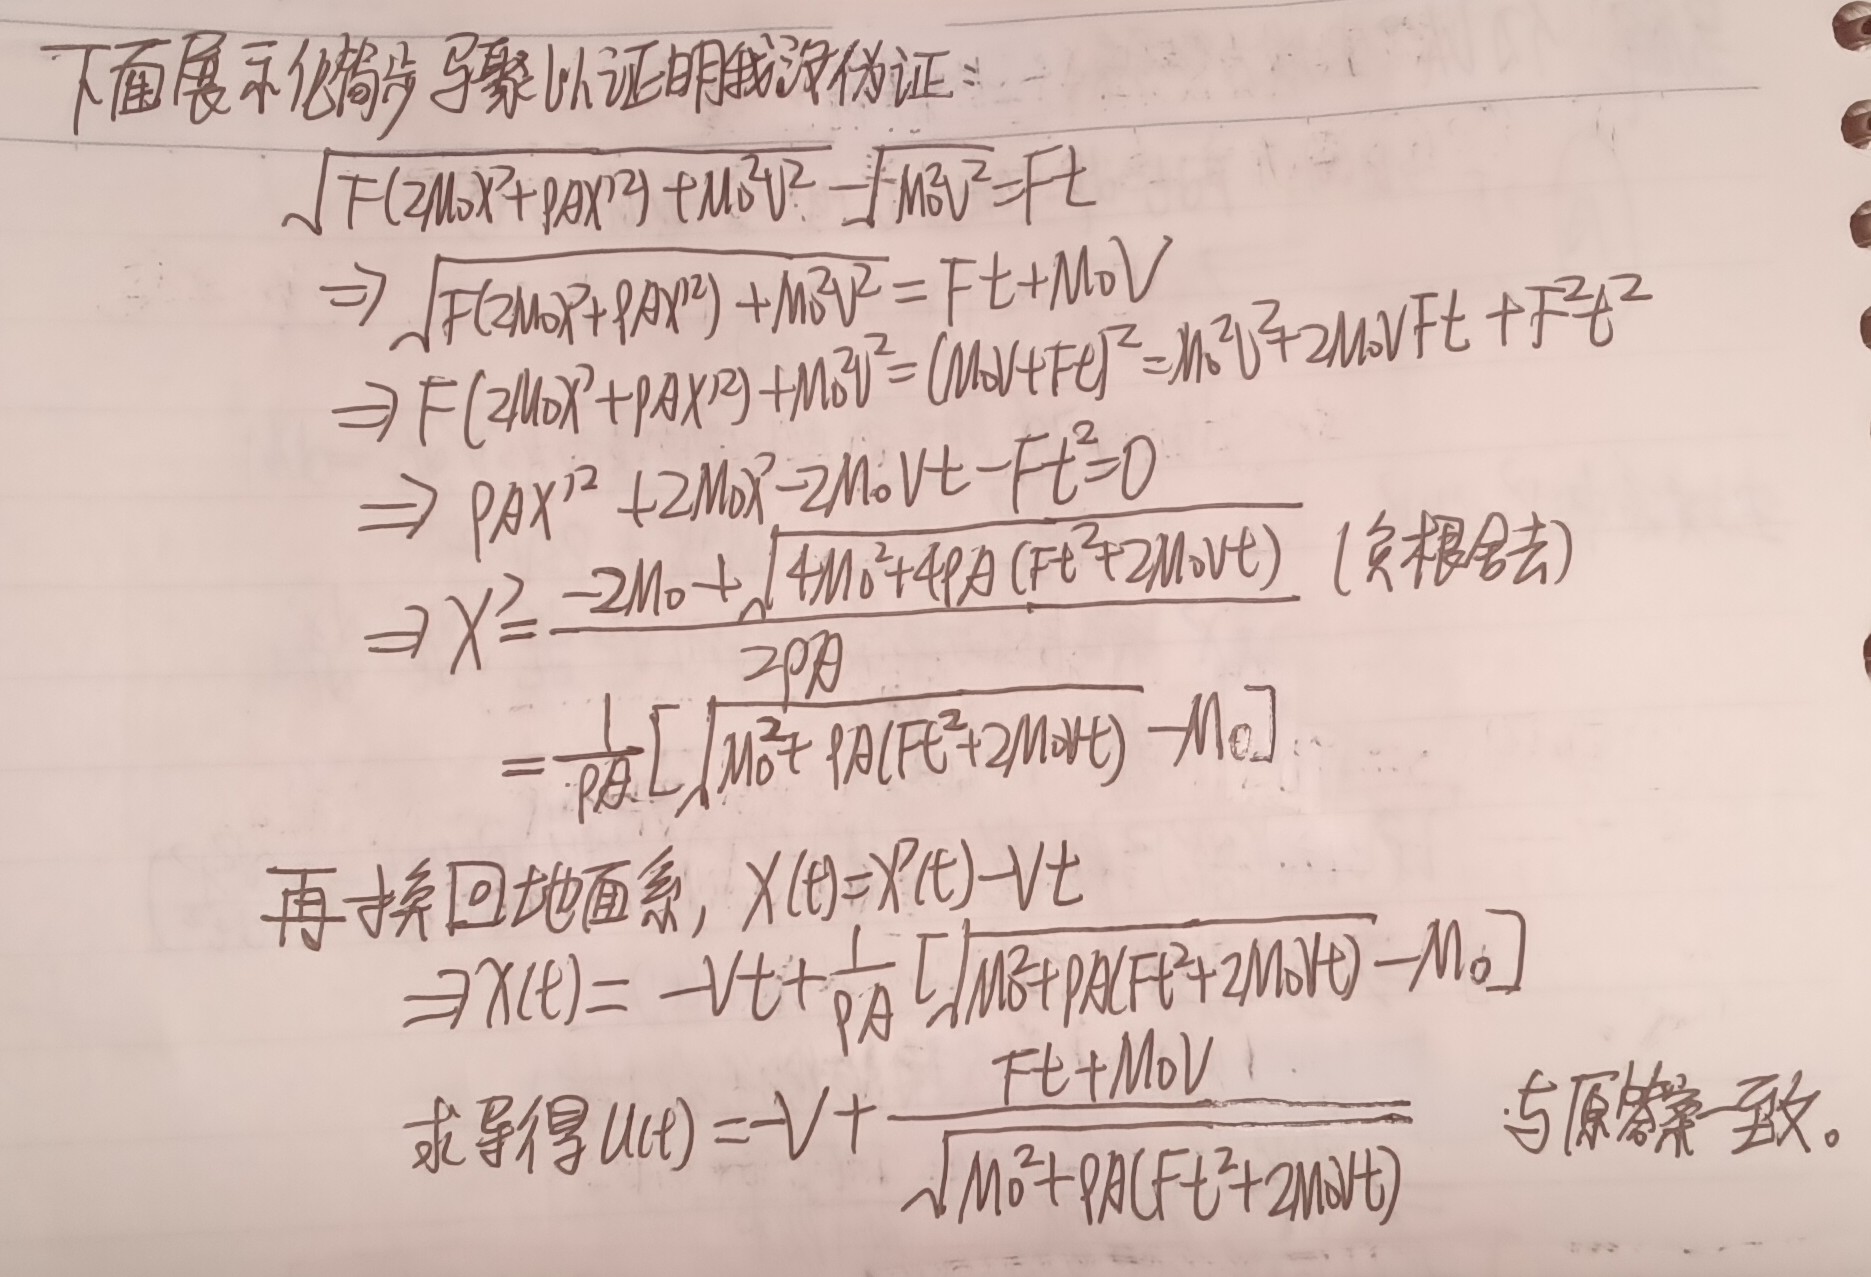 下面展示化简步骤以证明我没伪证：
√(F(2M₀x'+ρAx'²)+M₀²V²) - √(M₀²V²) = Ft
⇒ √(F(2M₀x'+ρAx'²)+M₀²V²) = Ft+M₀V
⇒ F(2M₀x'+ρAx'²)+M₀²V² = (M₀V+Ft)² = M₀²V²+2M₀VFt+F²t²
⇒ ρAx'²+2M₀x'-2M₀Vt-Ft²=0
⇒ x' = (-2M₀+√(4M₀²+4ρA(Ft²+2M₀Vt)))/(2ρA) (负根舍去)
= 1/(ρA)[√(M₀²+ρA(Ft²+2M₀Vt)) -M₀]
再换回地面系, x(t)=x'(t)-Vt
⇒ x(t) = -Vt+1/(ρA)[√(M₀²+ρA(Ft²+2M₀Vt)) -M₀]
求导得u(t) = -V+(Ft+M₀V)/√(M₀²+ρA(Ft²+2M₀Vt)) 与原答案一致。